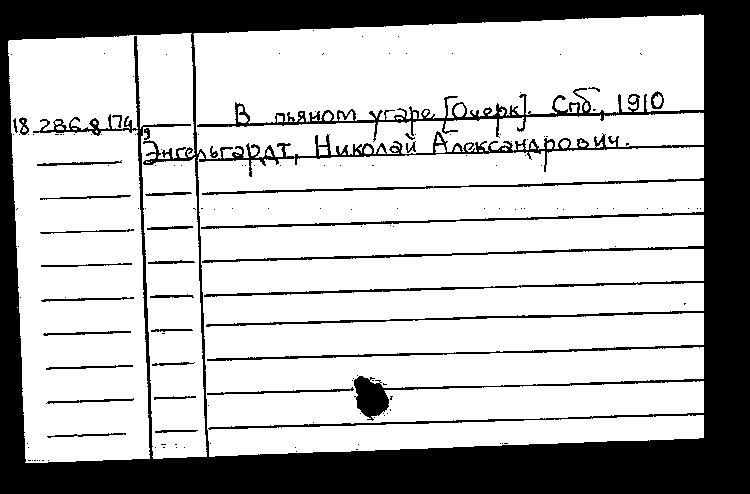 В пьяном угаре [Очерк]. Спб., 1910
18.286.8.174
Энгельгардт, Николай Александрович.